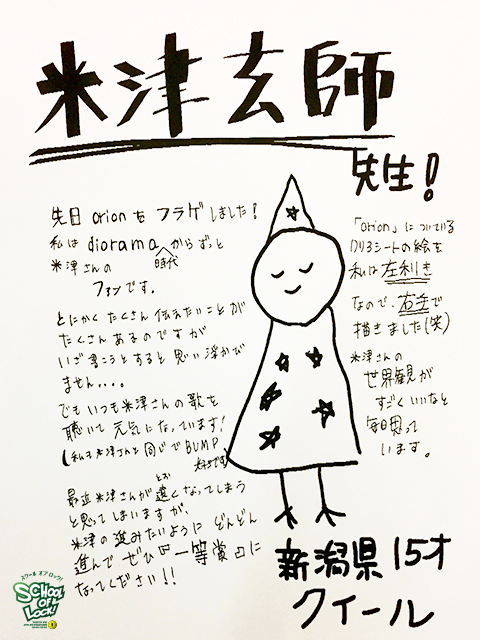 米津玄師
先生!
先日 orion を フラゲ しました!
私は diorama からずっと
時代
米津さんの
ファンです。
とにかくたくさん伝えたいことが
たくさんあるのですが
いざ書こうとすると思い浮かび
ません....
でもいつも米津さんの歌を
聴いて元気になっています!
(私も米津さんと同じで BUMP
好きです)
最近米津さんが遠くなってしまう
とお
と思ってしまいますが、
米津の進みたいように どんどん
進んで ぜひ 一等賞に
なってください!!
「orion」についている
クリアシートの絵を
私は左利き
なので、右手で
描きました(笑)
米津さんの
世界観が
すごくいいなと
毎日思って
います。
新潟県 15才
クィール
スクール オブ ロック!
SCHOOL
OF
LOCK!